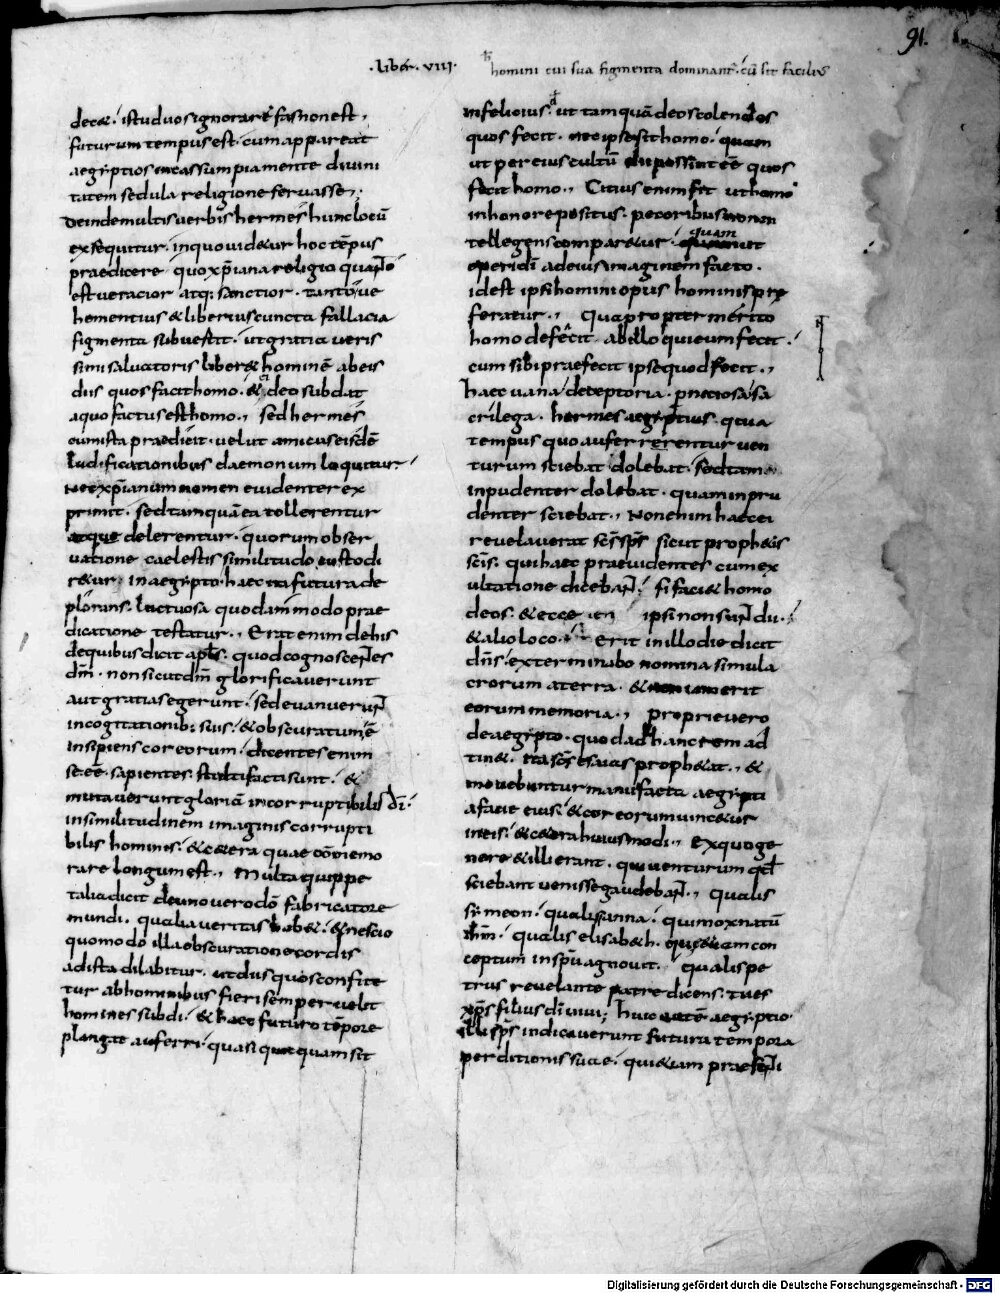 91.
.liber. VIII.
homini cui sua figmenta dominant̄. cū sit facilius
decet; istud uos ignorare fas non est,
futurum tempus est. cum appareat
aegyptios incassum pia mente diuini
tatem sedula religione seruasse.,
Deinde multis uerbis hermes hunc locū
exsequitur. in quo uidetur hoc tēpus
praedicere quo xp̄iana religio quanto
est ueracior atq; sanctior. tanto ue
hementius & liberius cuncta fallacia
figmenta subuertit. ut gratia ueris
simi saluatoris liberet hominē ab eis
diis quos facit homo. & ei deo subdat
a quo factus est homo., Sed hermes
cum ista praedicit. uelut amicus eisdē
ludificationibus daemonum loquitur
Nec xp̄ianum nomen euidenter ex
primit. sed tamquā ea tollerentur
atque delerentur. quorum obser
uatione caelestis similitudo custodi
retur. in aegypto. haec ita futura de
plorans. luctuosa quodammodo prae
dicatione testatur., Erat enim de his
de quibus dicit apl̄s. quod cognoscentes
dm̄. non sicut dm̄ glorificauerunt
aut gratias egerunt. sed euanuerunt
in cogitationib; suis. & obscuratum ē
insipiens cor eorum. dicentes enim
se eē. sapientes. stulti facti sunt. &
mutauerunt gloriā incorruptibilis dī.
in similitudinem imaginis corrupti
bilis hominis. & cetera quae cōmemo
rare longum est., Multa quippe
talia dicit de uno uero dō fabricatore
mundi. qualia ueritas habet. & nescio
quomodo illa obscuratione cordis
ad ista dilabitur. ut diis quos confite
tur ab hominibus fieri semper uelit
homines subdi. & haec futuro tēpore
plangat auferri. quasi quicquam sit
infelicius. ut tamquā deos colendos
quos fecit. nec ipse sit homo. quam
ut per eius cultū dii possint eē quos
fecit homo., Citius enim fit ut homo
in honore positus. pecoribus non in
tellegens comparetur. quam ut
operi dī ad eius imaginem facto.
id est ipsi homini opus hominis prę
feratur., Quapropter merito
homo deficit ab illo qui eum fecit.
cum sibi praefecit ipse quod fecit.,
haec uana deceptoria. pniciosa sa
crilega. hermes aegyptius. quia
tempus quo auferrerentur uen
turum sciebat dolebat. sed tam
inpudenter dolebat. quam inpru
denter sciebat., Non enim haec ei
reuelauerat sc̄s sp̄s sicut prophetis
sc̄is. qui haec praeuidentes cum ex
ultatione dicebant. si faciet homo
deos. & ecce ipsi non sunt dii.
& alio loco. Erit in illo die dicit
dn̄s. exterminabo nomina simula
crorum a terra. & non iam erit
eorum memoria., proprie uero
de aegypto. quod ad hanc rem ad
tinet. ita sc̄s esaias prophetat., &
mouebuntur manufacta aegypti
a facie eius. & cor eorum uincetur
in eis. & cetera huiusmodi., Ex quo ge
nere & illi erant. qui uenturum qd̄
sciebant uenisse gaudebant., qualis
symeon. qualis anna. qui mox natū
ih̄m. qualis elisabeth. quę etiam con
ceptum in spū agnouit. qualis pe
trus reuelante patre dicens. tu es
xp̄s filius dī uiui; huic autē aegyptio.
illi sp̄s indicauerunt futura tempora
perditionis suae. qui etiam praesenti